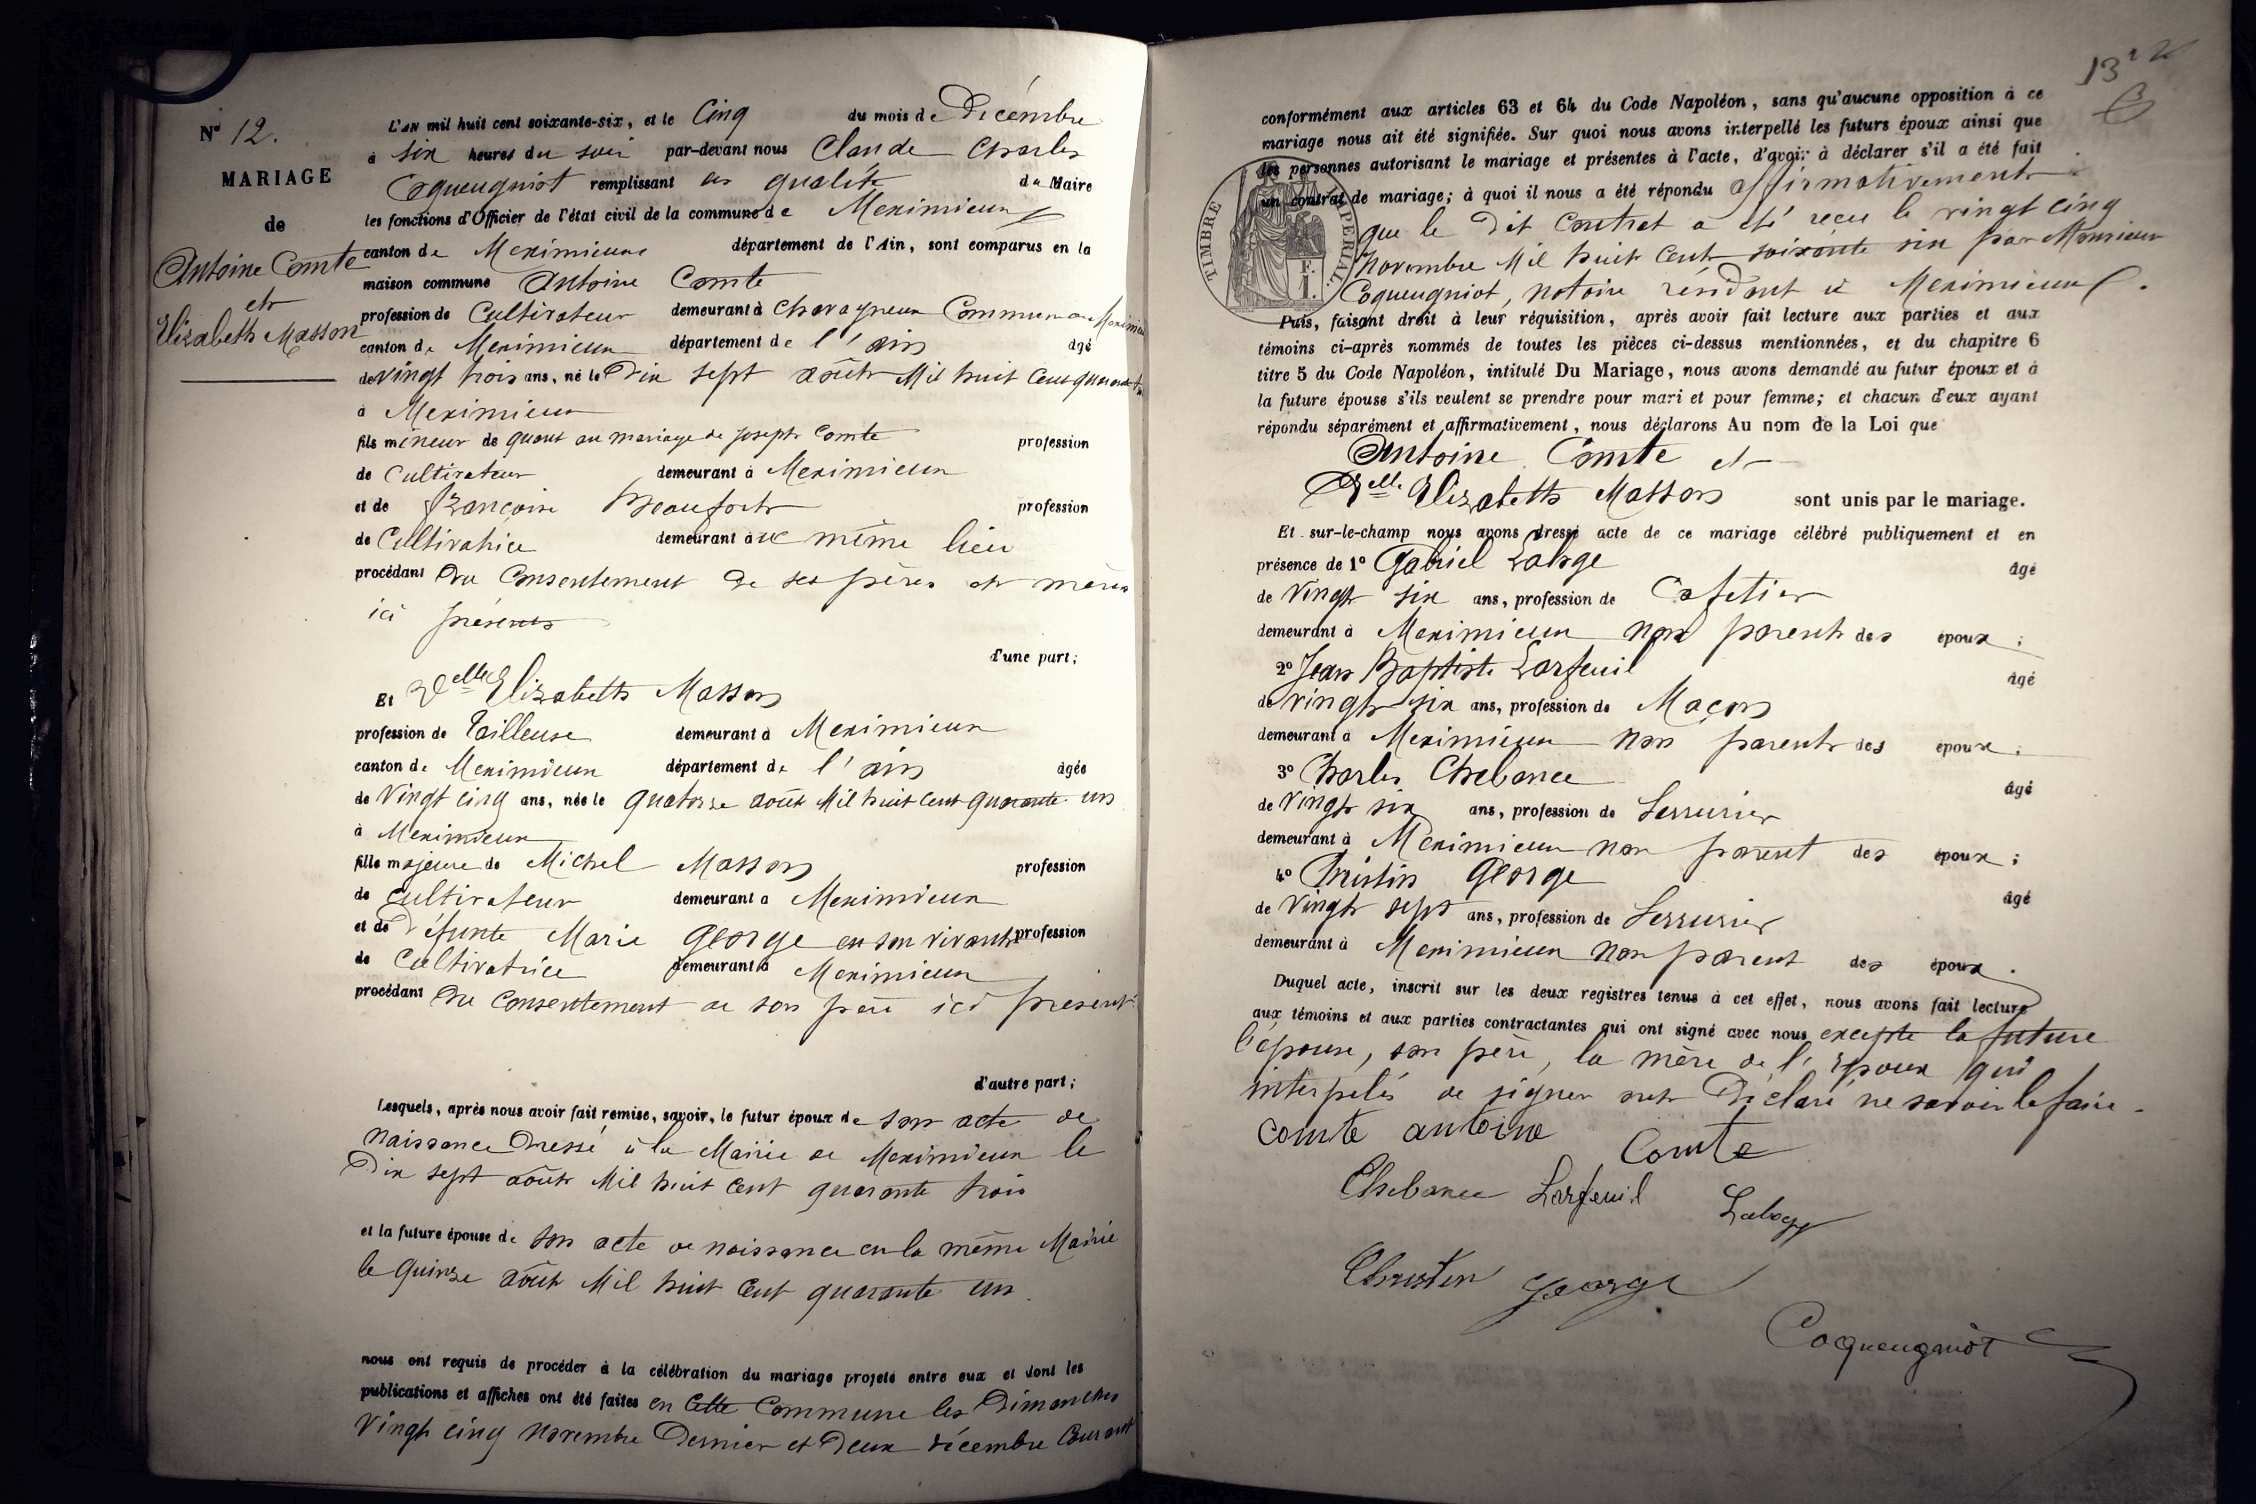 N° 12.
MARIAGE
de
Antoine Comte
et
Elizabeth Masson
L'AN mil huit cent soixante-six, et le Cinq du mois de Décembre
à six heures du soir par-devant nous Claude Charles
Coqueugniot remplissant en qualité de Maire
les fonctions d'Officier de l'état civil de la commune de Meximieux
canton de Meximieux département de l'Ain, sont comparus en la
maison commune Antoine Comte
profession de Cultivateur demeurant à Chavagneux Commune de Meximieux
canton de Meximieux département de l'ain âgé
de vingt trois ans, né le Dix sept août Mil huit Cent quarante trois
à Meximieux
fils mineur de quant au mariage de Joseph Comte profession
de Cultivateur demeurant à Meximieux
et de Françoise Beaufort profession
de Cultivatrice demeurant à au même lieu
procédant Du Consentement de ses pères et mères
ici présents
d'une part;
Et Delle Elizabeth Masson
profession de Tailleuse demeurant à Meximieux
canton de Meximieux département de l'ain âgée
de Vingt cinq ans, née le quatorze août Mil huit Cent quarante un
à Meximieux
fille majeure de Michel Masson profession
de Cultivateur demeurant à Meximieux
et de Défunte Marie George en son vivant profession
de Cultivatrice demeurant à Meximieux
procédant Du Consentement de son père ici présent
d'autre part;
Lesquels, après nous avoir fait remise, savoir, le futur époux de son acte de
naissance Dressé à la Mairie de Meximieux le
Dix sept août Mil huit Cent quarante trois
et la future épouse de son acte de naissance en la même Mairie
le quinze août Mil huit Cent quarante un
nous ont requis de procéder à la célébration du mariage projeté entre eux et dont les
publications et affiches ont été faites en Cette Commune les Dimanches
Vingt cinq Novembre Dernier et Deux décembre Courant
13
conformément aux articles 63 et 64 du Code Napoléon, sans qu'aucune opposition à ce
mariage nous ait été signifiée. Sur quoi nous avons interpellé les futurs époux ainsi que
les personnes autorisant le mariage et présentes à l'acte, d'avoir à déclarer s'il a été fait
un contrat de mariage; à quoi il nous a été répondu affirmativement
que le dit Contrat a été reçu le vingt cinq
Novembre Mil huit Cent soixante six par Monsieur
Coqueugniot, notaire résidant à Meximieux.
TIMBRE IMPERIAL.
F.
1.
Puis, faisant droit à leur réquisition, après avoir fait lecture aux parties et aux
témoins ci-après nommés de toutes les pièces ci-dessus mentionnées, et du chapitre 6
titre 5 du Code Napoléon, intitulé Du Mariage, nous avons demandé au futur époux et à
la future épouse s'ils veulent se prendre pour mari et pour femme; et chacun d'eux ayant
répondu séparément et affirmativement, nous déclarons Au nom de la Loi que
Antoine Comte et
Delle Elizabeth Masson sont unis par le mariage.
Et sur-le-champ nous avons dressé acte de ce mariage célébré publiquement et en
présence de 1° Gabriel Laboge âgé
de Vingt six ans, profession de Cafetier
demeurant à Meximieux non parent des époux;
2° Jean Baptiste Larfeuil âgé
de vingt six ans, profession de Maçon
demeurant à Meximieux non parent des époux;
3° Charles Chebance âgé
de Vingt six ans, profession de Serrurier
demeurant à Meximieux non parent des époux;
4° Christin George âgé
de Vingt sept ans, profession de Serrurier
demeurant à Meximieux non parent des époux.
Duquel acte, inscrit sur les deux registres tenus à cet effet, nous avons fait lecture
aux témoins et aux parties contractantes qui ont signé avec nous excepté la future
l'épouse, son père, la mère de l'époux qui
interpelés de signer ont Déclaré ne savoir le faire.
Comte antoine Comte
Chebance Larfeuil Laboge
Christin george
Coqueugniot